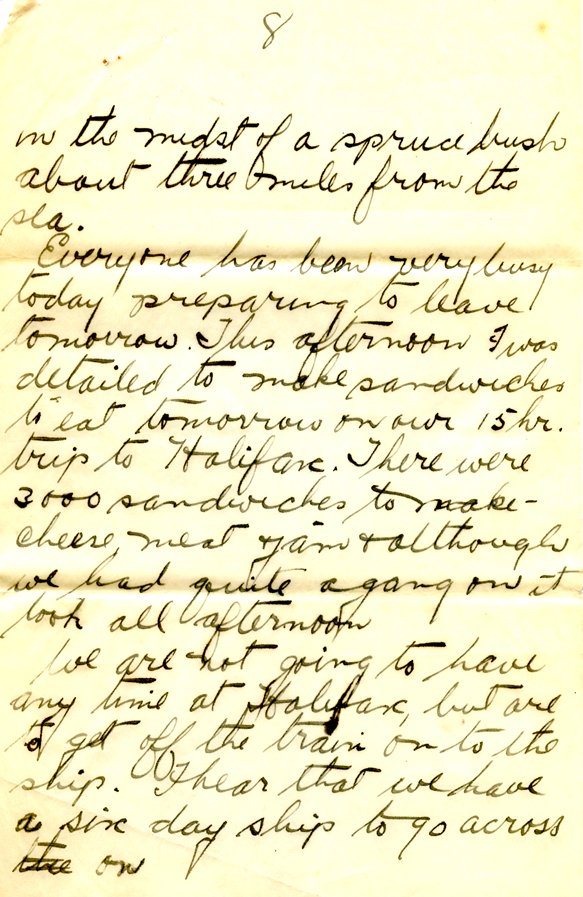 8
in the midst of a spruce bush
about three miles from the
sea.
Everyone has been very busy
today preparing to leave
tomorrow. This afternoon I was
detailed to make sandwiches
to eat tomorrow on our 15 hr.
trip to Halifax. There were
3000 sandwiches to make -
cheese meat & jam & although
we had quite a gang on it
took all afternoon
We are not going to have
any time at Halifax, but are
to get off the train on to the
ship. I hear that we have
a six day ship to go across
the on